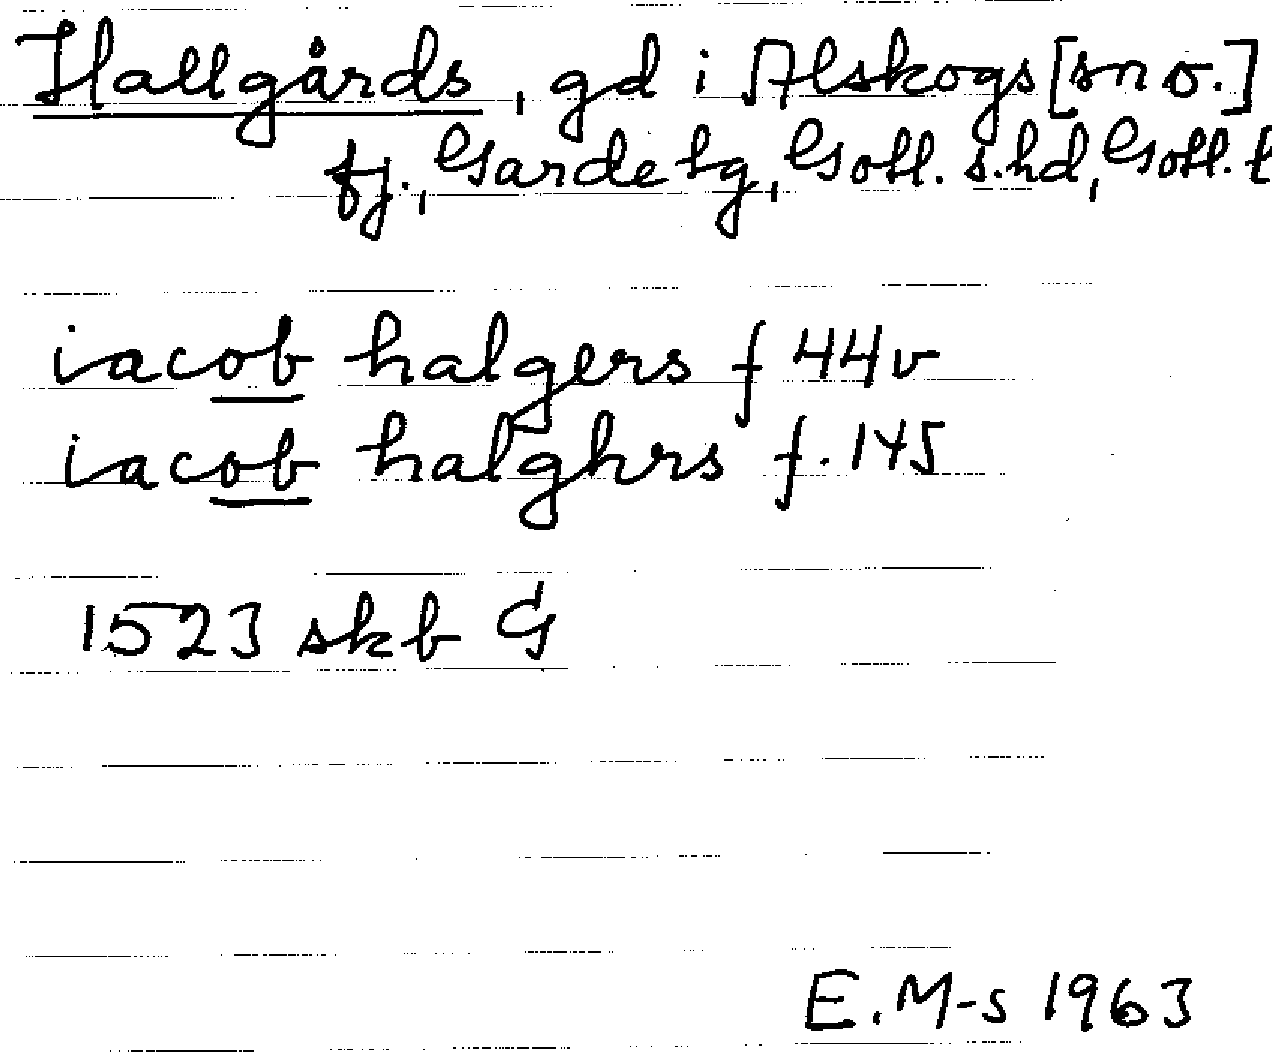 Hallgårds, gd i Alskogs [sn o.]
fj., Garde tg, Gotl. s. hd, Gotl. l
iacob halgers f 44v
iacob halghrs f. 145
1523 skb G
E. M-s 1963